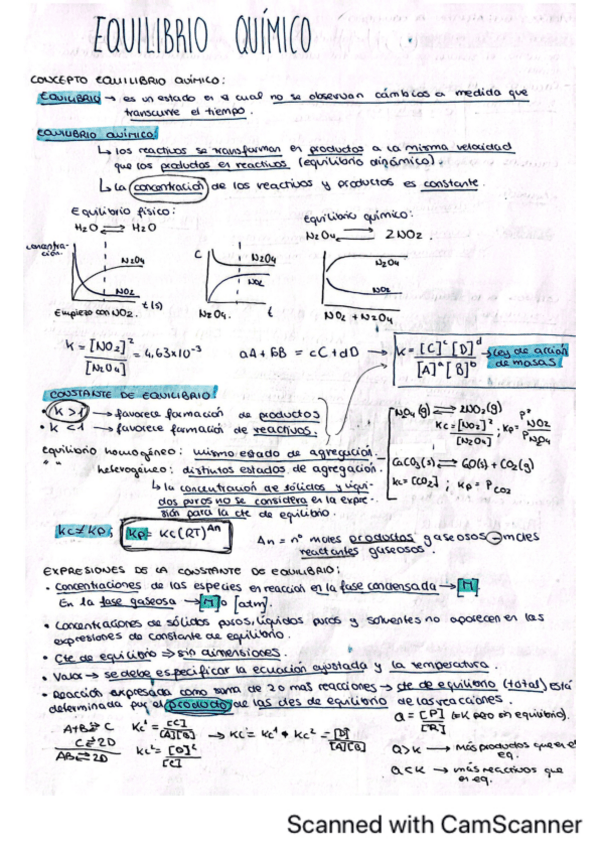 EQUILIBRIO QUÍMICO
CONCEPTO EQUILIBRIO QUÍMICO:
EQUILIBRIO → es un estado en el cual no se observan cambios a medida que
transcurre el tiempo.
EQUILIBRIO QUÍMICO
↳ los reactivos se transforman en productos a la misma velocidad
que los productos en reactivos (equilibrio dinámico).
↳ La concentración de los reactivos y productos es constante.
Equilibrio físico:
H2O ⇌ H2O
equilibrio químico:
N2O4 ⇌ 2NO2.
concentra-
ción.
N2O4
NO2
t(s)
Empiezo con NO2.
C
N2O4
NO2
t
N2O4.
N2O4
NO2
NO2 + N2O4
K = [NO2]² / [N2O4] = 4,63x10⁻³
aA + bB = cC + dD → K = [C]ᶜ [D]ᵈ / [A]ᵃ [B]ᵇ → Ley de acción
de masas
CONSTANTE DE EQUILIBRIO:
• K > 1 → favorece formación de productos
• K < 1 → favorece formación de reactivos.
equilibrio homogéneo: mismo estado de agregación.
" " heterogéneo: distintos estados de agregación.
↳ la concentración de sólidos y líqui-
dos puros no se considera en la expre-
sión para la cte de equilibrio.
N2O4 (g) ⇌ 2NO2 (g)
Kc = [NO2]² / [N2O4] ; Kp = P² NO2 / P N2O4
CaCO3(s) ⇌ CaO(s) + CO2(g)
Kc = [CO2] ; Kp = P CO2
Kc ≠ Kp; Kp = Kc(RT)^Δn
Δn = nº moles productos gaseosos - moles
reactantes gaseosos.
EXPRESIONES DE LA CONSTANTE DE EQUILIBRIO:
• Concentraciones de las especies en reacción en la fase condensada → [M].
En la fase gaseosa → [M] o [atm].
• Concentraciones de sólidos puros, líquidos puros y solventes no aparecen en las
expresiones de constante de equilibrio.
• Cte de equilibrio → sin dimensiones.
• Valor → se debe especificar la ecuación ajustada y la temperatura.
• Reacción expresada como suma de 2 o más reacciones → cte de equilibrio (total) está
determinada por el producto de las ctes de equilibrio de las reacciones.
A+B ⇌ C
C ⇌ 2D
AB ⇌ 2D
Kc¹ = [C] / [A][B]
Kc² = [D]² / [C]
→ Kc = Kc¹ * Kc² = [D] / [A][B]
Q = [P] / [R] (= K pero en equilibrio).
Q > K → más productos que en el
eq.
Q < K → más reactivos que
en eq.
Scanned with CamScanner